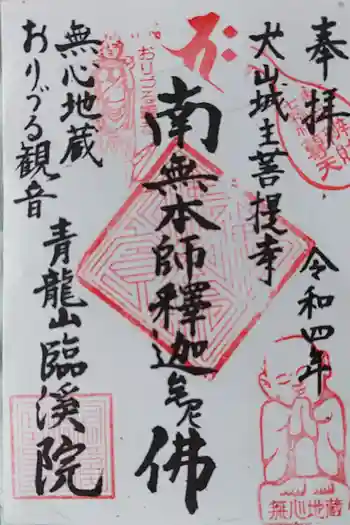 奉拝
令和四年
犬山城主菩提寺
南無本師釋迦牟尼佛
おりづる観音
無心地蔵
無心地蔵
おりづる観音
青龍山臨溪院